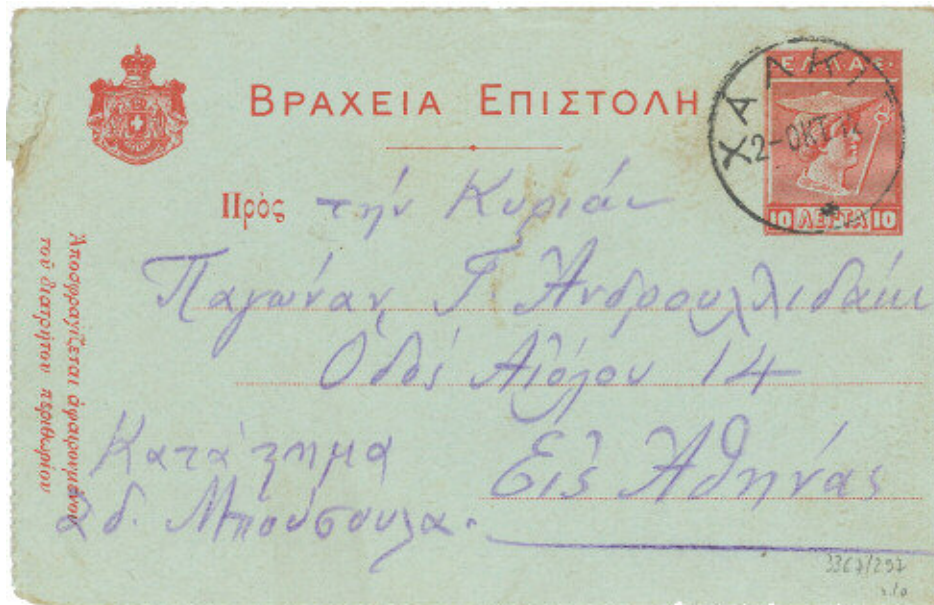 ΒΡΑΧΕΙΑ ΕΠΙΣΤΟΛΗ
ΕΛΛΑΣ
ΧΑΛΚΙ
2-ΟΚΤ
10 ΛΕΠΤΑ 10
Πρὸς τὴν Κυρίαν
Παγώναν Γ. Ἀνδρουλλιδάκι
Ὁδὸς Αἰόλου 14
Κατάστημα
Εἰς Ἀθήνας
ἀδ. Μπούσουλα.
Ἀποσφραγίζεται ἀφαιρουμένου
τοῦ διατρήτου περιθωρίου
3367/297